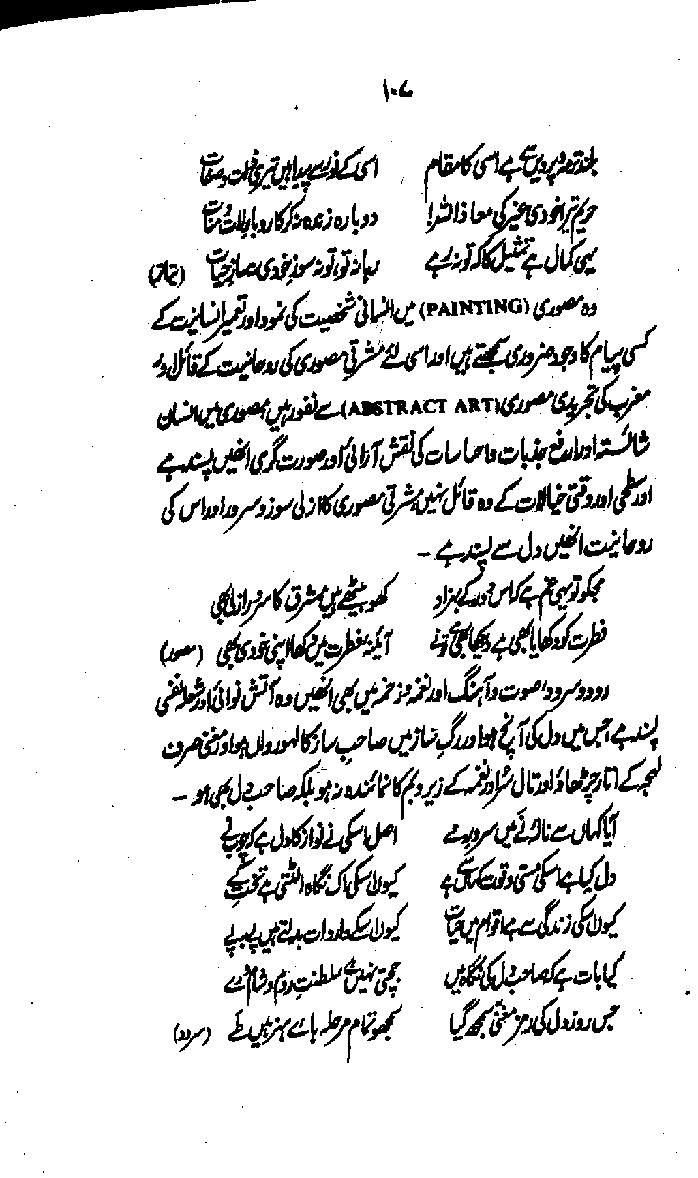 ۱۰۷
بلند تر مہ و پرویں سے ہے اسی کا مقام اسی کے نور سے پیدا ہیں تیری ذات و صفات
حریم تیرا خودی غیر کی معاذ اللہ! دوبارہ زندہ نہ کر کاروبار لات و منات
یہی کمال ہے تمثیل کا کہ تو نہ رہے رہا نہ تو، تو نہ سوزِ خودی نہ سازِ حیات (تیاتر)
وہ مصوری (PAINTING) میں انسانی شخصیت کی نمود اور تعمیر انسانیت کے
کسی پیام کا وجود ضروری سمجھتے ہیں اور اسی لئے مشرقی مصوری کی روحانیت کے قائل اور
مغرب کی تجریدی مصوری (ABSTRACT ART) سے نفور ہیں، مصوری میں انسان
شائستہ اور ارفع جذبات و احساسات کی نقش آرائی اور صورت گری انھیں پسند ہے
اور سطحی اور وقتی خیالات کے وہ قائل نہیں، مشرقی مصوری کا ازلی سوز و سرور اور اس کی
روحانیت انھیں دل سے پسند ہے ۔
مجکو تو یہی غم ہے کہ اس دور کے بہزاد کھو بیٹھے ہیں مشرق کا سرور ازلی بھی
فطرت کو دکھایا بھی ہے دیکھا بھی ہے تو نے آئینۂ فطرت میں دکھا اپنی خودی بھی (مصور)
رود و سرود، صوت و آہنگ اور نغمہ و زخمہ میں بھی انھیں وہ آتش نوائی اور شعلہ نفسی
پسند ہے جس میں دل کی آنچ ہو اور رگِ ساز میں صاحب ساز کا لہو رواں ہو اور مغنی صرف
لہجہ کے اتار چڑھاؤ اور تال سُر اور نغمہ کے زیر و بم کا نمائندہ نہ ہو بلکہ صاحبِ دل بھی ہو ۔
آیا کہاں سے نالۂ نے میں سرورِ مے اصل اسکی نے نواز کا دل ہے کہ چوبِ نے
دل کیا ہے، اسکی مستی و قوت کہاں سے ہے کیوں اسکی اک نگاہ الٹتی ہے تختِ کے
کیوں اسکی زندگی سے ہے اقوام میں حیات کیوں اسکے واردات بدلتے ہیں پے بہ پے
کیا بات ہے کہ صاحبِ دل کی نگاہ میں جچتی نہیں ہے سلطنتِ روم و شام و رے
جس روز دل کی رمز مغنی سمجھ گیا سمجھو تمام مرحلہ ہائے ہنر ہیں طے (سرود)